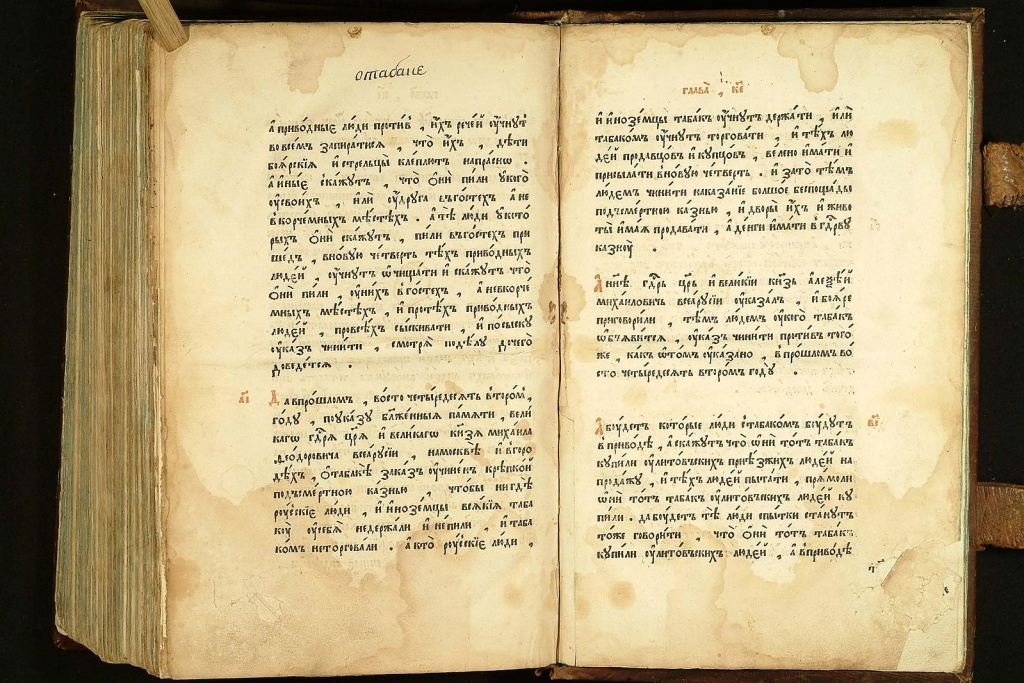 отабаце
а҆ приво́дные лю́ди проти́в , и҆́хъ рече́й ᲂу҆чнꙋ́тъ
во всем запира́тися , что и҆́хъ , дѣ́ти
боя́рскїя и҆ стрельцы̀ клеплю́т напра́сно .
а҆ и҆ны́е ска́жутъ , что ѻ҆нѝ пи́ли ᲂу҆ кого̀
ᲂу҆ свои́хъ , и҆лѝ ᲂу҆ дрꙋ́га в гостѣ́х а҆ не
в корче́мныхъ мѣ́стѣхъ . а҆ тѣ лю́ди ᲂу҆ кото
рыхъ ѻ҆нѝ ска́жꙋтъ , пи́ли въ гостѣ́х при
ше́дъ , в но́вꙋю че́тверть тѣ́хъ приво́дныхъ
люде́й , ᲂу҆чнꙋ́тъ ѡ҆чища́ти и҆ ска́жꙋтъ что
ѻ҆нѝ пи́ли , ᲂу҆ ни́хъ в гостѣ́хъ , а҆ не в корче́
мныхъ мѣ́стѣхъ , и҆ про тѣ́хъ приво́дныхъ
люде́й , про всѣ́хъ сы́скивати , и҆ по сы́скꙋ
ᲂу҆ка́зъ чини́ти , смотря̀ по дѣ́лꙋ до чего̀
доведе́тся .
а҃і Да в про́шломъ , во сто четы́редесять второ́м ,
годꙋ̀ , по ᲂу҆ка́зꙋ бл҃же́нныя па́мяти , вели
кагѡ гдⷭ҇ря цр҃я̀ и҆ вели́кагѡ кн҃зя михаила
ѳеодоровича всеарꙋсі́и , на москвѣ̀ и҆ в горо
дѣ́хъ , ѡ҆ табакѣ̀ зака́зъ ᲂу҆чине́н крѣ́пкой
под сме́ртною ка́знью , что́бы нигдѣ̀
рꙋ́скїе лю́ди , и҆ и҆ноземцы вся́кїя таба
кꙋ̀ ᲂу҆ себя̀ не держа́ли и҆ не пи́ли , и҆ таба
ко́мъ не торгова́ли . а҆ кто рꙋ́скїе лю́ди ,
глава̀ , к҃е
и҆ и҆ноземцы таба́к ᲂу҆чнꙋ́тъ держа́ти , и҆лѝ
табако́мъ ᲂу҆чнꙋ́тъ торгова́ти , и҆ тѣ́хъ лю
де́й продавцо́въ и҆ кꙋпцо́въ , ве́лено и҆ма́ти и҆
присыла́ти в но́вꙋю че́тверть . и҆ за то̀ тѣ́мъ
лю́демъ чини́ти наказа́нїе болшо́е без поща́ды
под сме́ртною ка́знью , и҆ дворы̀ и҆́хъ и҆ живо
ты̀ и҆мая продава́ти , а҆ де́нги и҆ма́ти в гдⷭ҇рвꙋ
казнꙋ̀ .
А нн҃ѣ гдⷭ҇рь цр҃ь и҆ вели́кїи кн҃зь а҆леѯѣ́й
миха́иловичь всеарꙋсі́и ᲂу҆каза́лъ , и҆ боя́ре
приговори́ли , тѣ́мъ лю́демъ ᲂу҆ кого̀ таба́къ
ѡ҆бъяви́тся , ᲂу҆ка́зъ чини́ти про́тивъ того̀
же , ка́къ ѡ҆ то́мъ ᲂу҆ка́зано , в про́шломъ во
сто четы́редесять второ́мъ годꙋ̀ .
А бꙋ́детъ кото́рые лю́ди с табако́мъ бꙋ́дꙋтъ в҃і
в приво́дѣ , а҆ ска́жꙋтъ что ѡ҆нѝ то́тъ таба́къ
кꙋпи́ли ᲂу҆ лито́въскихъ приѣ́зжихъ люде́й на
прода́жꙋ , и҆ тѣ́хъ люде́й пыта́ти , пря́мо ли
ѡ҆нѝ то́тъ таба́къ ᲂу҆ лито́въскихъ люде́й кꙋ
пи́ли . да бꙋ́детъ тѣ̀ лю́ди с пы́тки ста́нꙋтъ
то́же говори́ти , что ѻ҆нѝ то́тъ таба́къ
кꙋпи́ли ᲂу҆ лито́въскихъ люде́й , а҆ в приво́дѣ